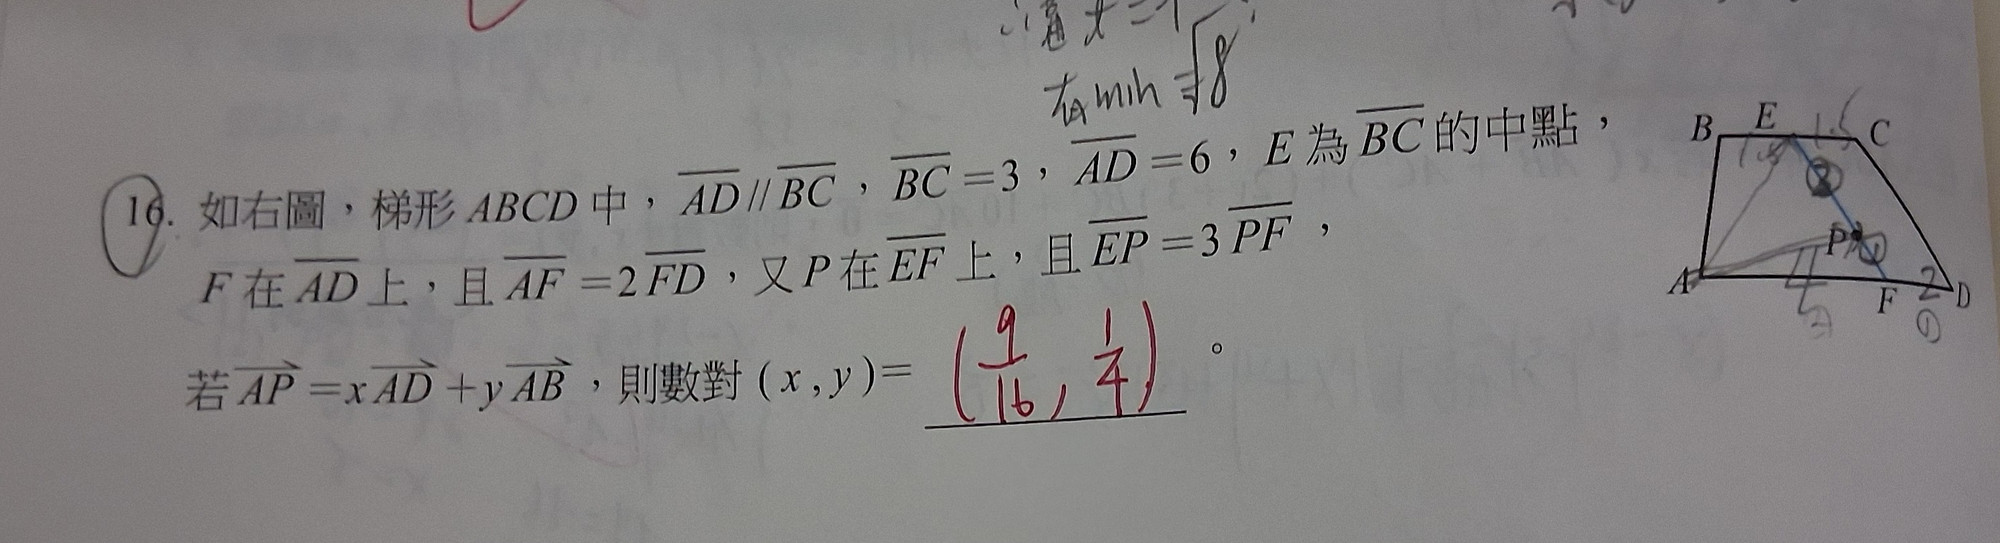 min = √8
16. 如右圖，梯形 ABCD 中，AD // BC，BC = 3，AD = 6，E 為 BC 的中點，
F 在 AD 上，且 AF = 2FD，又 P 在 EF 上，且 EP = 3PF，
若 AP = xAD + yAB，則數對 (x, y) = (9/16, 1/4)。
B E C
1.5 1.5
P ①
A F D
4 2
② ①